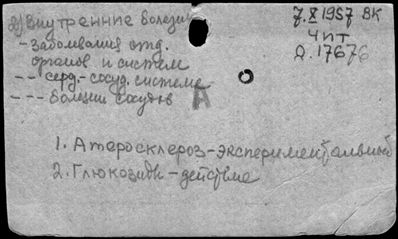 2) Внутренние болезни
7.X 1957 ВК
- заболевания отд.
Ч ПТ
органов и систем
Д. 17676
-- серд.-сосуд. системе
--- болезни сосудов
А
1. Атеросклероз-экспериментальный
2. Глюкозиды-действие